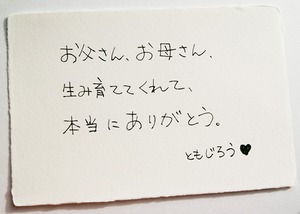 お父さん、お母さん、
生み育ててくれて、
本当にありがとう。
ともじろう♥